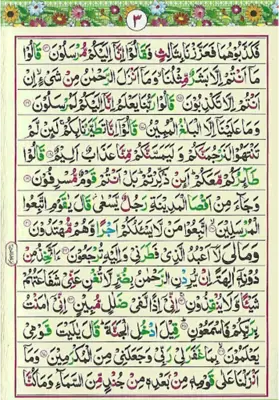 ٣
فَكَذَّبُوهُمَا فَعَزَّزْنَا بِثَالِثٍ فَقَالُوٓا اِنَّآ اِلَيْكُمْ مُّرْسَلُوْنَ ۝ قَالُوْا
مَآ اَنْتُمْ اِلَّا بَشَرٌ مِّثْلُنَا ۙ وَمَآ اَنْزَلَ الرَّحْمٰنُ مِنْ شَيْءٍ ۙ اِنْ
اَنْتُمْ اِلَّا تَكْذِبُوْنَ ۝ قَالُوْا رَبُّنَا يَعْلَمُ اِنَّآ اِلَيْكُمْ لَمُرْسَلُوْنَ ۝
وَمَا عَلَيْنَآ اِلَّا الْبَلٰغُ الْمُبِيْنُ ۝ قَالُوْٓا اِنَّا تَطَيَّرْنَا بِكُمْ ۚ لَئِنْ لَّمْ
تَنْتَهُوْا لَنَرْجُمَنَّكُمْ وَلَيَمَسَّنَّكُمْ مِّنَّا عَذَابٌ اَلِيْمٌ ۝ قَالُوْا
طَآئِرُكُمْ مَّعَكُمْ ۗ اَئِنْ ذُكِّرْتُمْ ۗ بَلْ اَنْتُمْ قَوْمٌ مُّسْرِفُوْنَ ۝
وَجَآءَ مِنْ اَقْصَا الْمَدِيْنَةِ رَجُلٌ يَّسْعٰى قَالَ يٰقَوْمِ اتَّبِعُوا
الْمُرْسَلِيْنَ ۝ اتَّبِعُوْا مَنْ لَّا يَسْئَلُكُمْ اَجْرًا وَّهُمْ مُّهْتَدُوْنَ ۝
وَمَا لِيَ لَآ اَعْبُدُ الَّذِيْ فَطَرَنِيْ وَاِلَيْهِ تُرْجَعُوْنَ ۝ ءَاَتَّخِذُ مِنْ
دُوْنِهٖٓ اٰلِهَةً اِنْ يُّرِدْنِ الرَّحْمٰنُ بِضُرٍّ لَّا تُغْنِ عَنِّيْ شَفَاعَتُهُمْ
شَيْئًا وَّلَا يُنْقِذُوْنِ ۝ اِنِّيْٓ اِذًا لَّفِيْ ضَلٰلٍ مُّبِيْنٍ ۝ اِنِّيْٓ اٰمَنْتُ
بِرَبِّكُمْ فَاسْمَعُوْنِ ۝ قِيْلَ ادْخُلِ الْجَنَّةَ ۗ قَالَ يٰلَيْتَ قَوْمِيْ
يَعْلَمُوْنَ ۝ بِمَا غَفَرَ لِيْ رَبِّيْ وَجَعَلَنِيْ مِنَ الْمُكْرَمِيْنَ ۝ وَمَآ
اَنْزَلْنَا عَلٰى قَوْمِهٖ مِنْۢ بَعْدِهٖ مِنْ جُنْدٍ مِّنَ السَّمَآءِ وَمَا كُنَّا